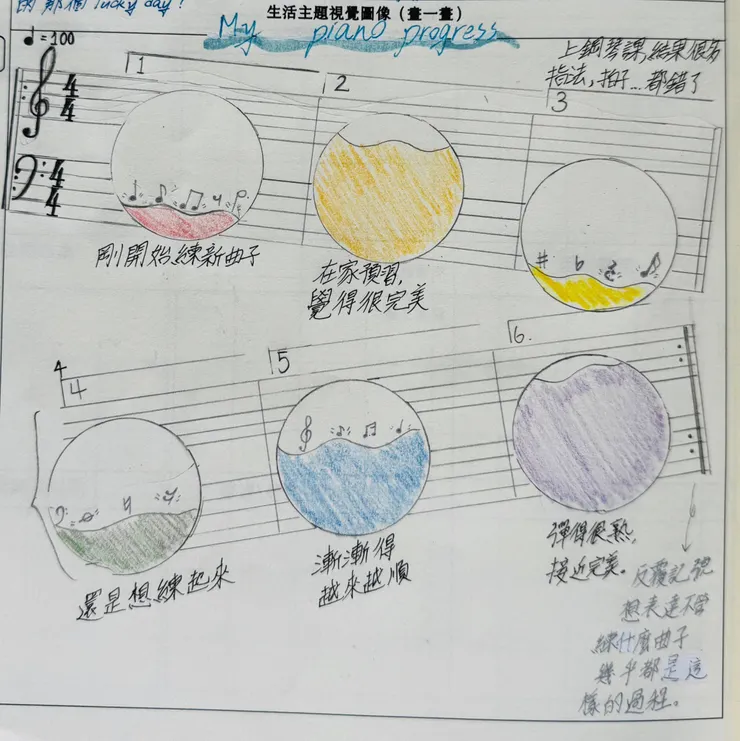 的那個lucky day!
生活主題視覺圖像（畫一畫）
My piano progress
♩=100
上鋼琴課,結果很多
指法,拍子...都錯了
1
2
3
4
4
4
4
剛開始練新曲子
在家預習,
覺得很完美
4
4
5
6.
還是想練起來
漸漸得
越來越順
彈得很熟,
接近完美。
反覆記號
想表達不管
練什麼曲子
幾乎都是這
樣的過程。